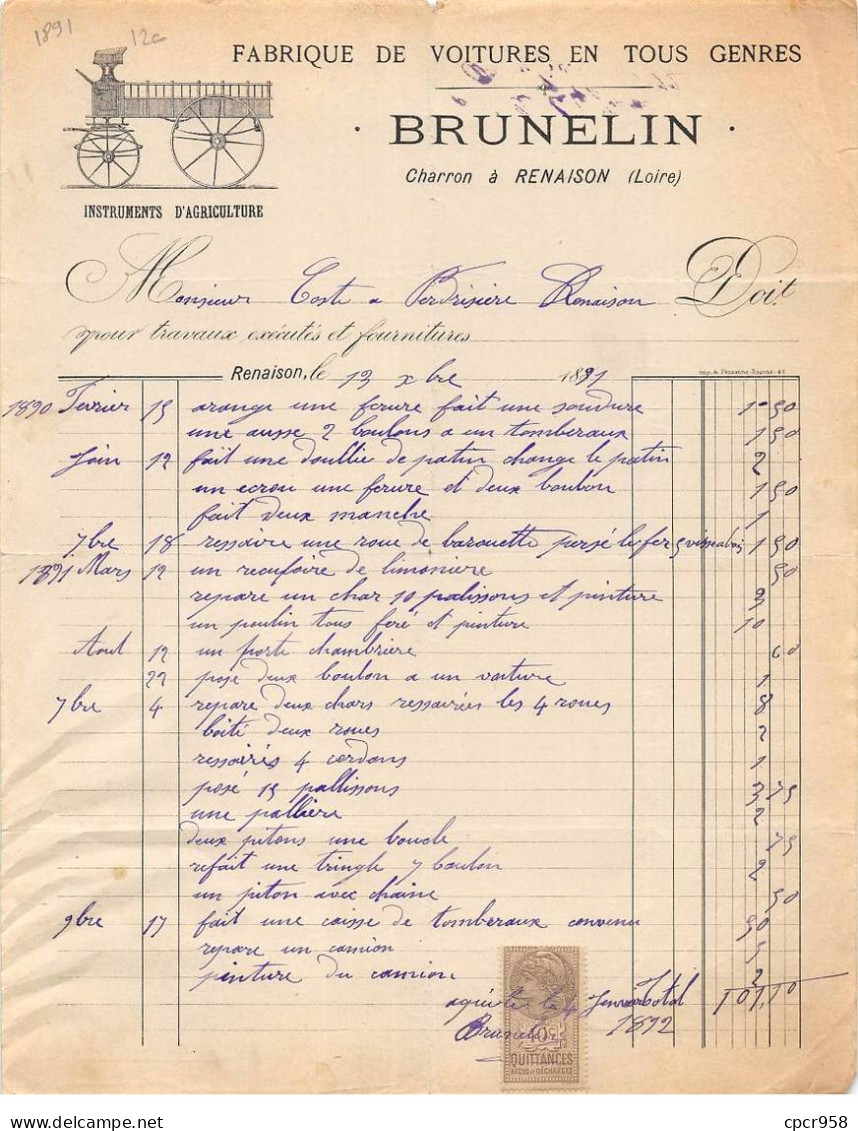 1891
12c
FABRIQUE DE VOITURES EN TOUS GENRES
· BRUNELIN ·
Charron à RENAISON (Loire)
INSTRUMENTS D'AGRICULTURE
Monsieur Coste a Perdrisière Renaison Doit
pour travaux exécutés et fournitures
Renaison, le 13 xbre 1891
1890 Fevrier 15 arange une ferure fait une soudure 1 50
une ausse 2 boulons a un tomberaux 1 50
Juin 12 fait une doullie de patin change le patin 2
un ecrou une ferure et deux boulon 1 50
fait deux manche 1
7bre 18 ressaire une roue de barouette persé le fer 5 vissealois 1 50
1891 Mars 12 un reculoire de limoniere 50
repare un char 10 palissons et pinture 3
un poulin tous feré et pinture 10
Aout 12 un porte chambriere 60
22 pose deux boulon a un voiture 1
7bre 4 repare deux chars ressairées les 4 roues 8
boité deux roues 2
ressairés 4 cordons 1
posé 15 pallissons 3 75
une palliere 2
deux pitons une boucle 75
refait une tringle 7 boulon 2
un piton avec chaine 50
9bre 17 fait une caisse de tomberaux convenu 50
repare un camion 5
pinture du camion 2
Total 101,10
aquite le 4 Janvier 1892
Brunelin
10c
QUITTANCES
REÇUS ET DÉCHARGES
cpcr958